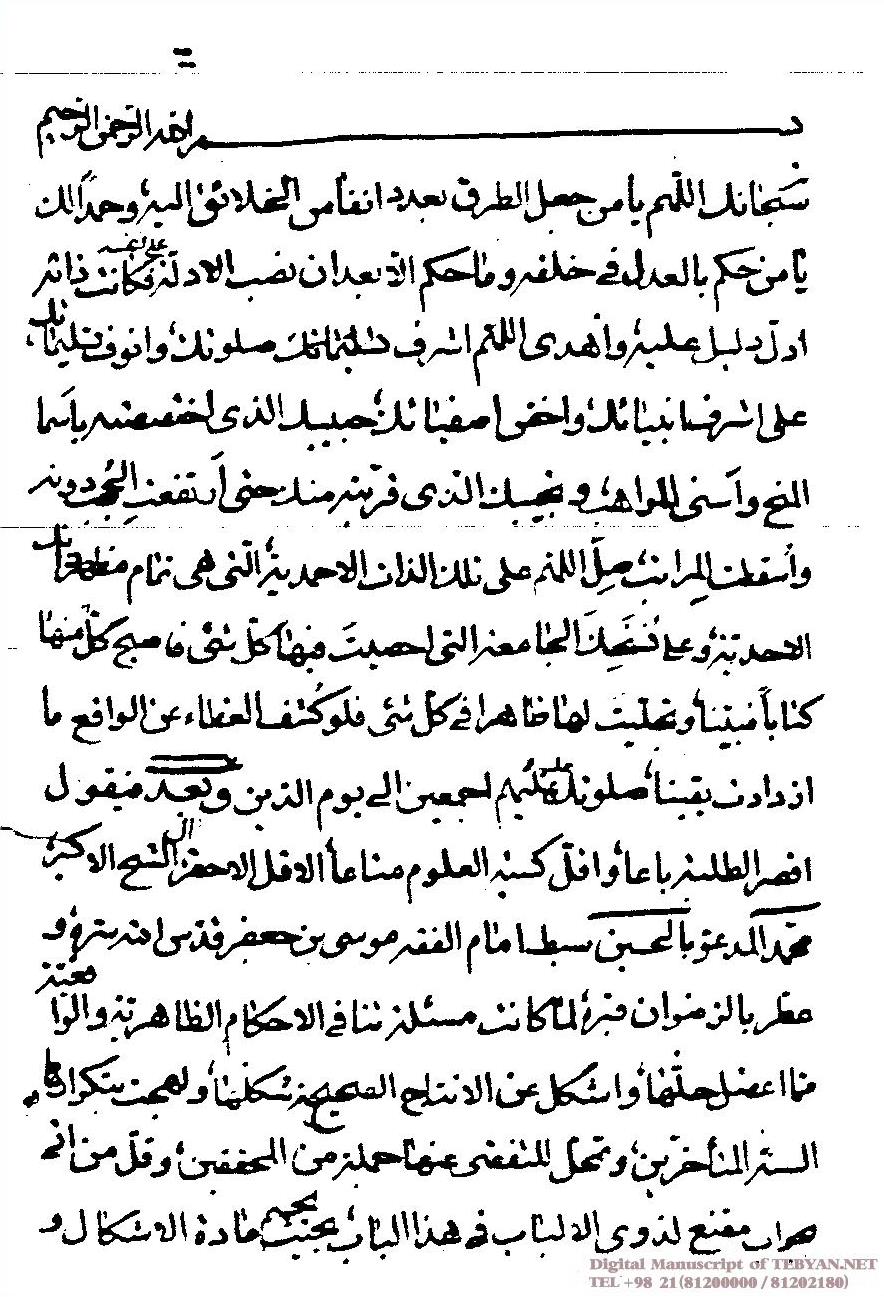 بسم الله الرحمن الرحيم
سبحانك اللهم يا من جعل الطرق بعدد انفاس الخلائق اليه وحمدا لك
يا من حكم بالعدل في خلقه وما حكم الا بعد ان نصب الادلة فكانت ذاته
ادل دليل عليه واهدى اللهم اشرف صلوتك وانوف تسليماتك
على اشرف انبيائك واخص اصفيائك حبيبك الذى اختصصته باسما
المنح واسنى المواهب ونجيبك الذى قربته منك حتى ارتفعت الحجب دونه
واسقطت المراتب صل اللهم على تلك الذات الاحدية التى هى تمام
الاحدية وعلى الجامعة التى احصيت فيها كل شئ فاصبح كل منها
كتاباً مبيناً وتجليت لها ظاهرا في كل شئ فلو كشف الغطاء عن الواقع ما
ازدادت يقينا صلوتك عليه وعليهم اجمعين الى يوم الدين وبعد فيقول
اقصر الطلبة باعاً واقل كسبة العلوم متاعاً الاقل الاحقر ابن الشيخ الاكبر
محمد المدعو بالحسين سبط امام الفقه موسى بن جعفر قدس الله سره و
عطر بالرضوان قبره لما كانت مسئلة تنافي الاحكام الظاهرية والواقعية
مما اعضل حلها واشكل عن الانتاج الصحيح شكلها ولهجت بتكرارها
السن المتأخرين وتمحل للتفصى عنها جملة من المحققين وقل من اتى
بجواب مقنع لذوى الالباب في هذا الباب بحيث يحسم مادة الاشكال و
Digital Manuscript of TEBYAN.NET
TEL +98 21(81200000 / 81202180)